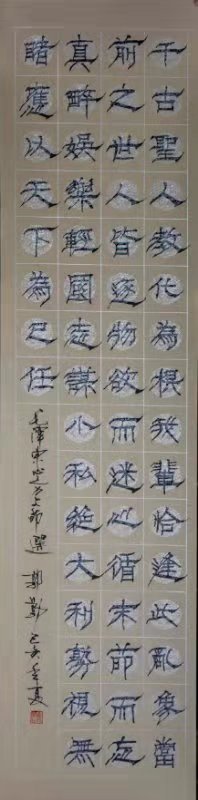 千古聖人教化為根我輩恰逢此亂象當
前之世人皆逐物欲而迷心循末節而忘
真醉娛樂輕國志謀小私絕大利勢視無
睹應以天下為己任
毛澤東心之力節選 己亥夏